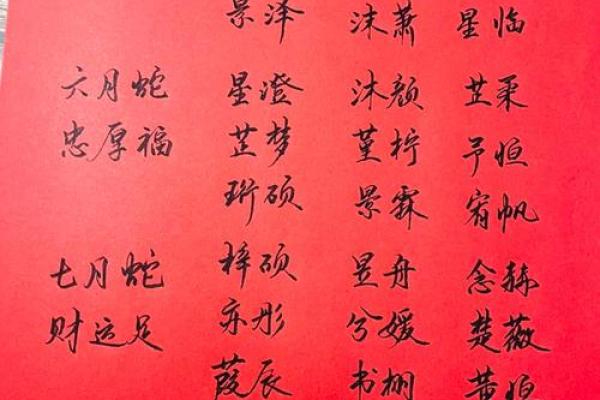 景泽 沐萧 星临
六月蛇 星澄 沐颜 芷柔
忠厚福 芷梦 堇柠 予恒
珩硕 景霖 宥帆
七月蛇 梓硕 昱舟 念赫
财运足 亦彤 兮媛 楚薇
葭辰 书栩